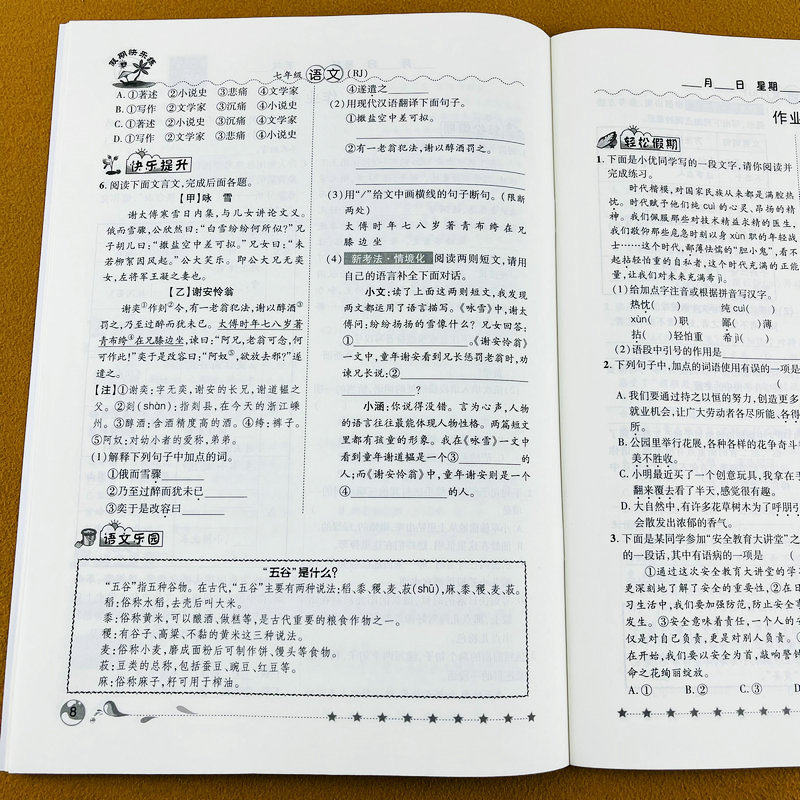 假期快乐练
七年级 语文 (RJ)
A. ①著述 ②小说史 ③悲痛 ④文学家
B. ①写作 ②文学家 ③沉痛 ④小说史
C. ①著述 ②文学家 ③悲痛 ④小说史
D. ①写作 ②文学家 ③沉痛 ④小说史
快乐提升
6. 阅读下面文言文,完成后面各题。
【甲】咏 雪
谢太傅寒雪日内集,与儿女讲论文义。
俄而雪骤,公欣然曰:“白雪纷纷何所似?”兄
子胡儿曰:“撒盐空中差可拟。”兄女曰:“未
若柳絮因风起。”公大笑乐。即公大兄无奕
女,左将军王凝之妻也。
【乙】谢安怜翁
谢奕①作剡②令,有一老翁犯法,谢以醇酒③
罚之,乃至过醉而犹未已。太傅时年七八岁著
青布绔④在兄膝边坐,谏曰:“阿兄,老翁可念,何
可作此!”奕于是改容曰:“阿奴⑤,欲放去邪?”遂
遣之。
【注】①谢奕:字无奕,谢安的长兄,谢道韫之
父。②剡(shàn):指剡县,在今天的浙江嵊
州。③醇酒:含酒精度高的酒。④绔:裤子。
⑤阿奴:对幼小者的爱称,弟弟。
(1)解释下列句子中加点的词。
①俄而雪骤
②乃至过醉而犹未已
③奕于是改容曰
④遂遣之
(2)用现代汉语翻译下面句子。
①撒盐空中差可拟。
②有一老翁犯法,谢以醇酒罚之。
(3)用“/”给文中画横线的句子断句。(限断
两处)
太傅时年七八岁著青布绔在兄
膝边坐
(4) 新考法·情境化 阅读两则短文,请用
自己的语言补全下面对话。
小文:读了上面这两则短文,我发现
两文都运用了语言描写。《咏雪》中,谢太
傅问:纷纷扬扬的雪像什么?兄女回答:
①。《谢安怜翁》
一文中,童年谢安看到兄长惩罚老翁时,劝
谏兄长说:②
?
小涵:你说得没错。言为心声,人物
的语言往往最能体现人物性格。两篇短文
里都有孩童的形象。我在《咏雪》一文中
看到童年谢道韫是一个③的
人;而《谢安怜翁》中,童年谢安则是一个
④的人。
语文乐园
“五谷”是什么?
“五谷”指五种谷物。在古代,“五谷”主要有两种说法:稻、黍、稷、麦、菽(shū),麻、黍、稷、麦、菽。
稻:俗称水稻,去壳后叫大米。
黍:俗称黄米,可以酿酒、做糕等,是古代重要的粮食作物之一。
稷:有谷子、高粱、不黏的黄米这三种说法。
麦:俗称小麦,磨成面粉后可制作饼、馒头等食物。
菽:豆类的总称,包括蚕豆、豌豆、红豆等。
麻:俗称麻子,籽可用于榨油。
8
月 日 星期
作业
轻松假期
1. 下面是小优同学写的一段文字,请你阅读并
完成练习。
时代楷模,对国家民族从来都是满腔热
忱。时代赋予他们纯 cuì 的心灵、昂扬的精
神。我们佩服那些对技术精益求精的医生,
我们敬仰那些危急时刻以身 xùn 职的年轻战
士……这个时代,鄙薄怯懦的“胆小鬼”,看不
起拈轻怕重的自私者,这个时代充满的正能
量,让我们对未来充满希 jì。
(1)给加点字注音或根据拼音写汉字。
热忱( ) 纯 cuì( )
xùn( )职 鄙( )薄
拈( )轻怕重 希 jì( )
(2)语段中引号的作用是
2. 下列句子中,加点的词语使用有误的一项是
(
A. 我们要通过持之以恒的努力,创造更多
就业机会,让广大劳动者各尽所能、各得
所。
B. 公园里举行花展,各种各样的花争奇斗
美不胜收。
C. 小明最近买了一个创意玩具,我拿在手
翻来覆去看了半天,感觉很有趣。
D. 大自然中,有许多花草树木为了呼朋引
会散发出浓郁的香气。
3. 下面是某同学参加“安全教育大讲堂”之
的一段话,其中有语病的一项是 (
①通过这次安全教育大讲堂的学
更深刻地了解了安全的重要性,②在日
习生活中,我们要加强防范,防止安全事
发生。③安全意味着责任,一个人的安
仅是对自己负责,更是对别人负责。
在开始,我们要以安全为首,敲响警钟
命之花绚丽绽放。
A. ① B. ② C. ③ D.